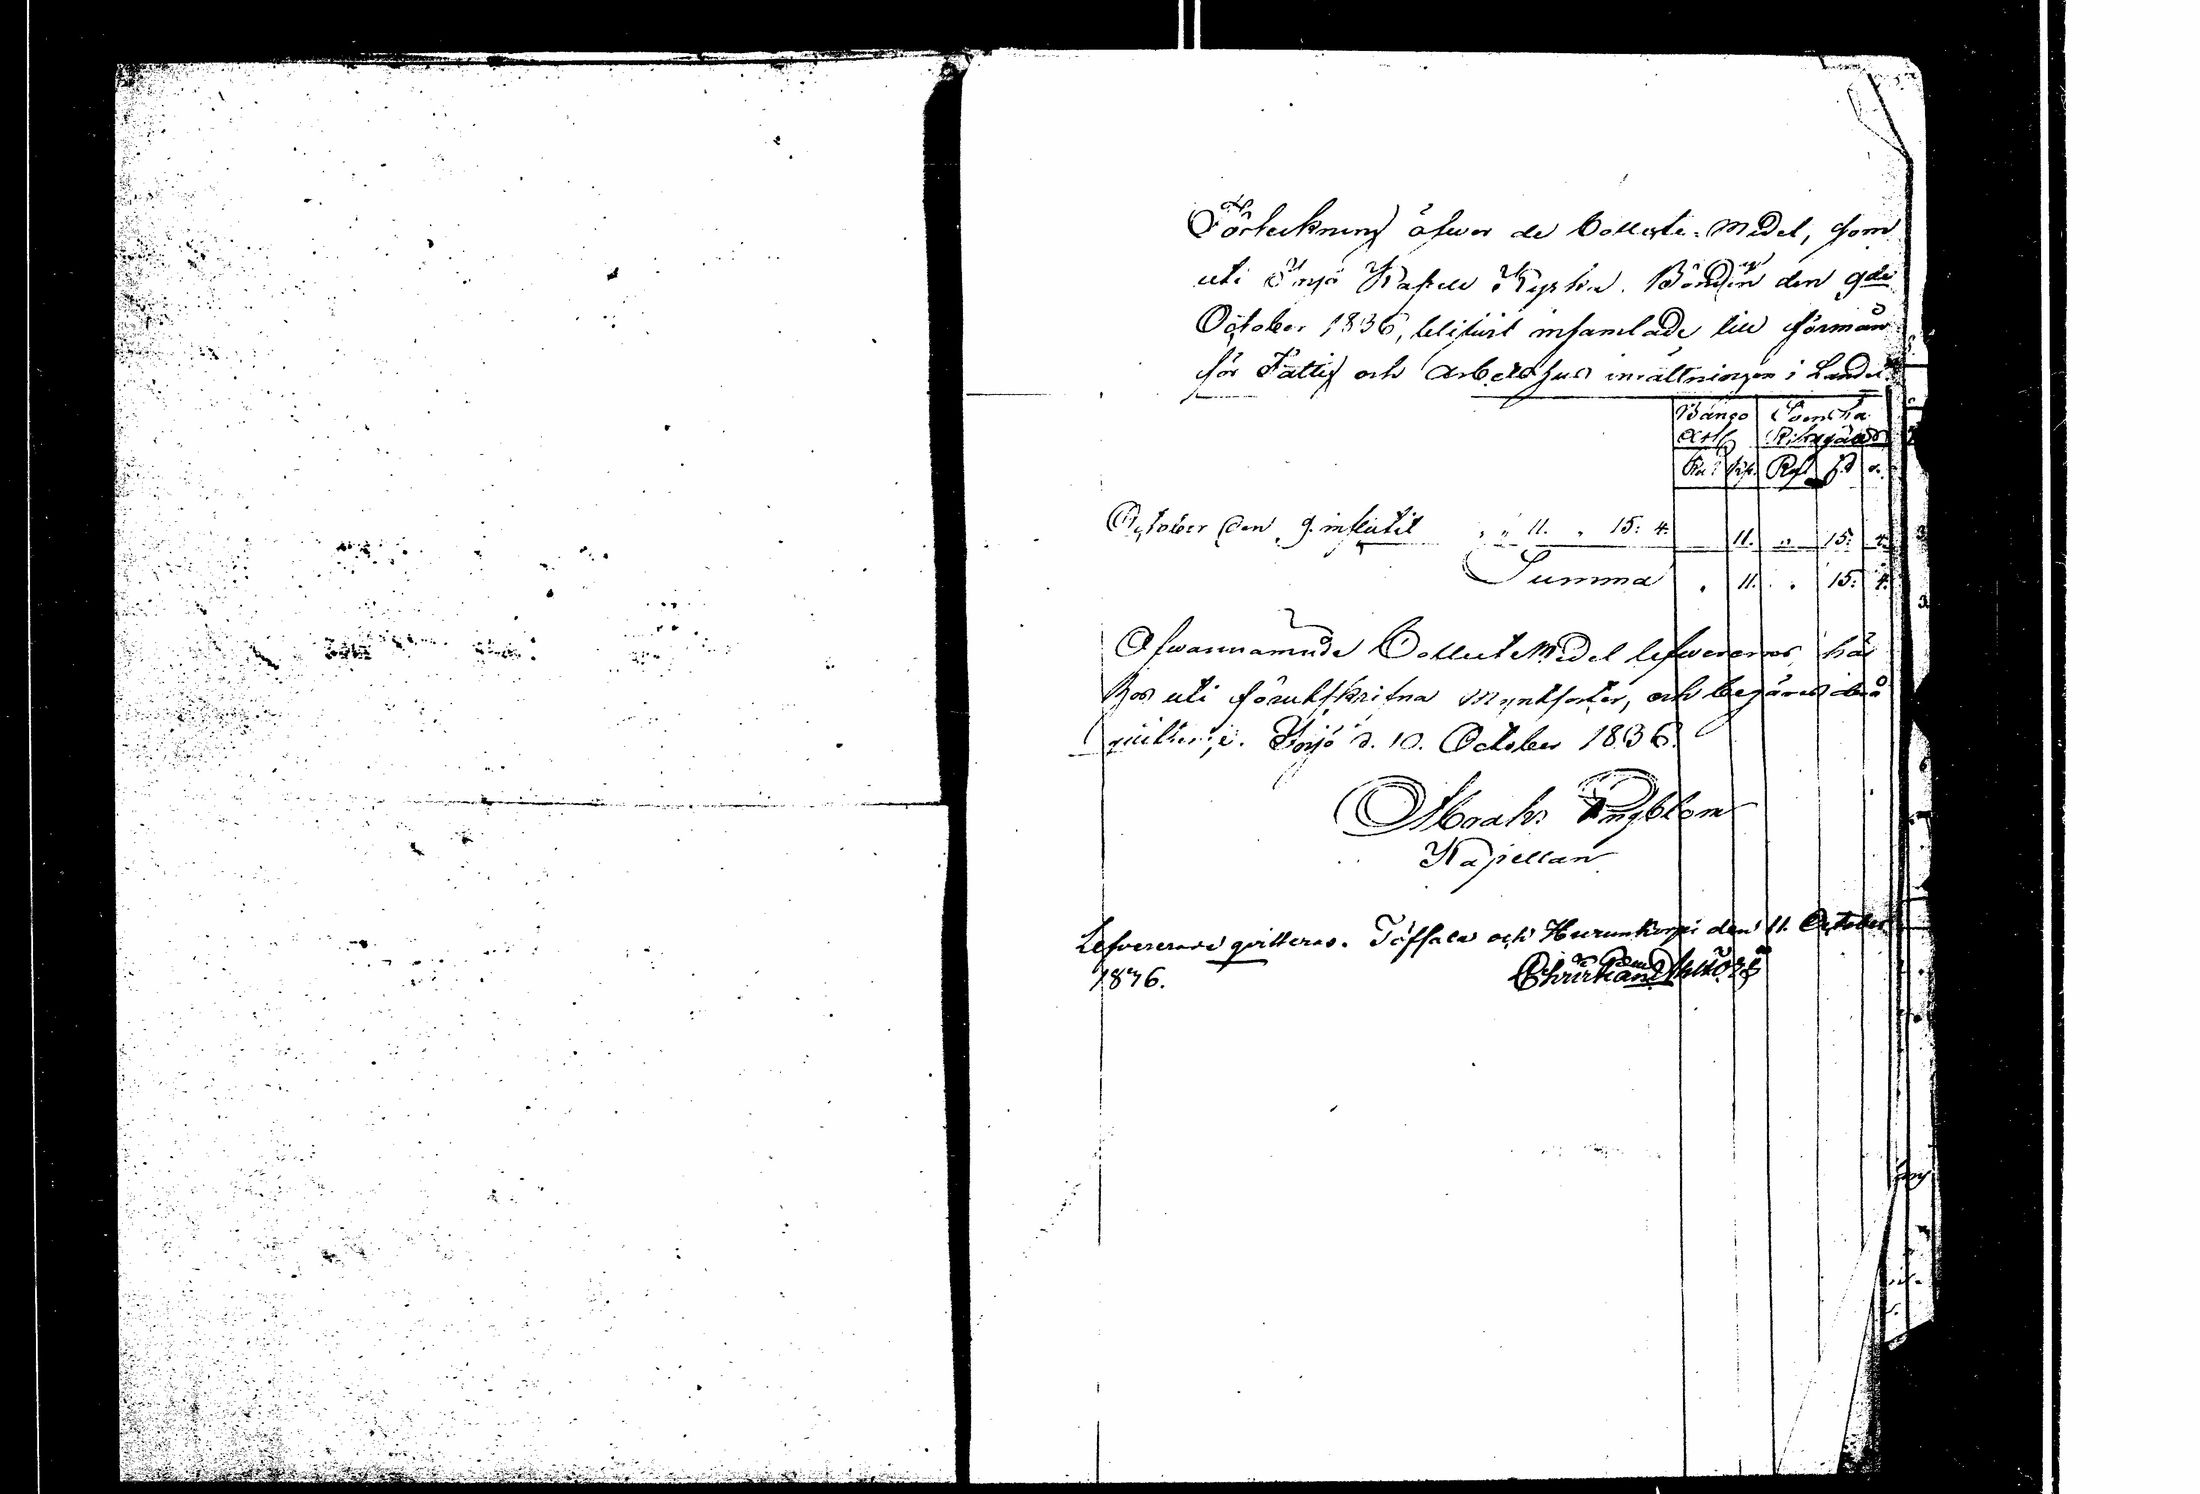 Förteckning öfwer de Collecte-Medel, som
uti Kapell Kyrka Böndagen den 9de
October 1836, blifwit insamlade till förmån
för Fattig och Arbetshus inrättningen i Landet
Banco Svenska
Riksgälds
Kop. Rgs ß r.
October den 9. influtit " " 11. " 15: 4. 11. " 15: 4.
Summa " 11. " 15: 4.
Ofwannämnde Collecte Medel lefwereras här
hos uti föruts͏krifna Myntsorter, och begäres derå
qvittence. d. 10. October 1836.
Abrah: Engblom
Kapellan
Lefvererade qvitteras. Töffsala och Hurunkorpi den 11. October
1836. Christian